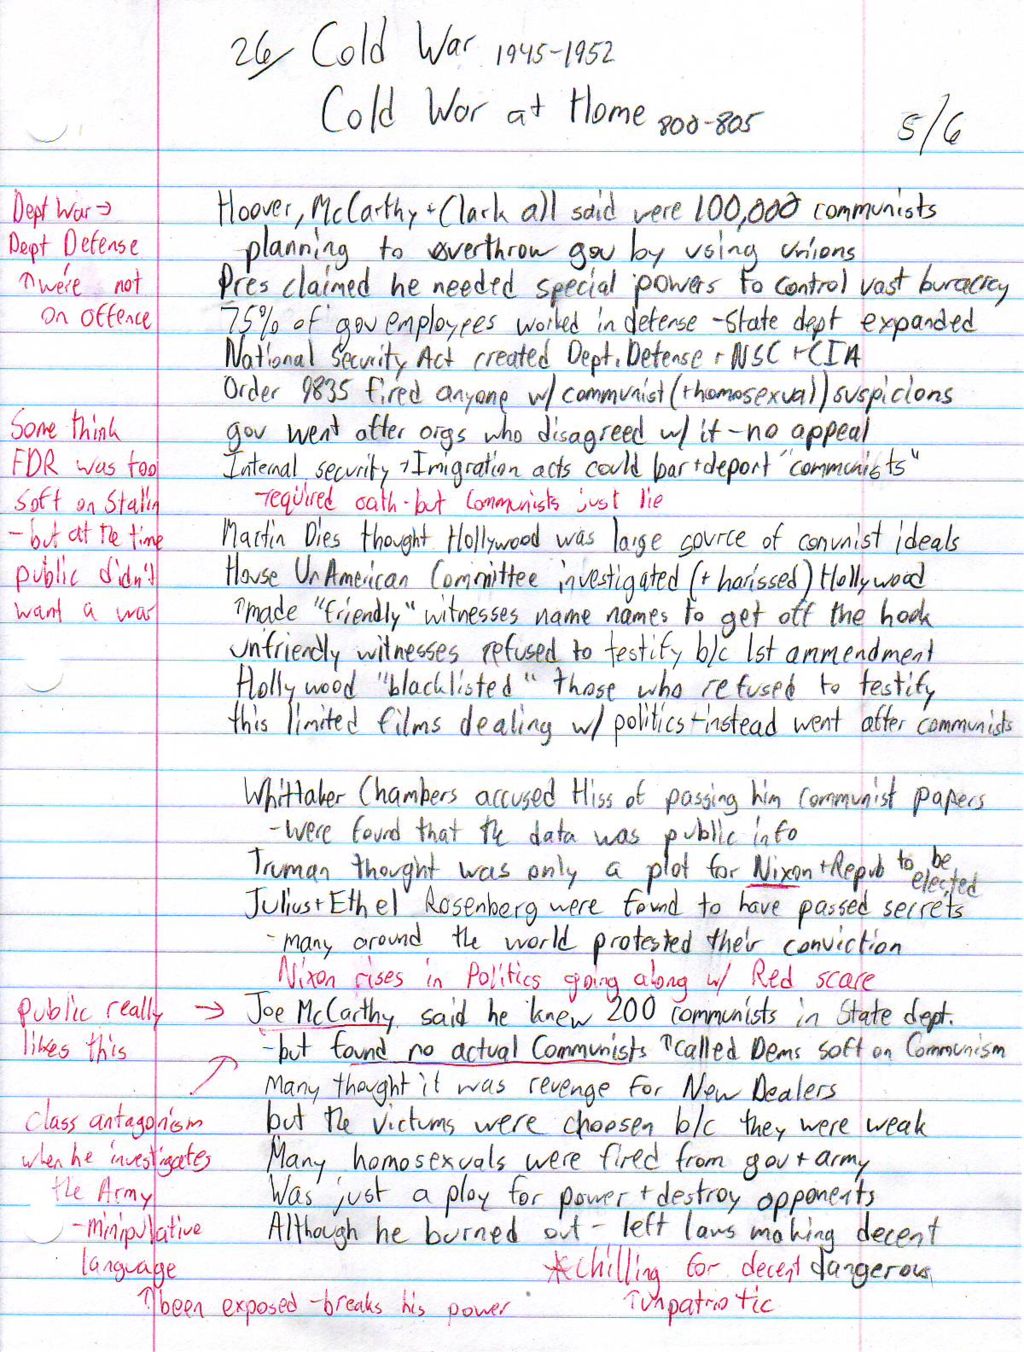 26/ Cold War 1945-1952
Cold War at Home 800-805
5/6
Dept War →
Dept Defense
↑ were not
on offence
Hoover, McCarthy + Clark all said were 100,000 communists
planning to overthrow gov by using unions
Pres claimed he needed special powers to control vast buracrcy
75% of gov employees worked in defense - State dept expanded
National Security Act created Dept. Defense + NSC + CIA
Order 9835 fired anyone w/ communist (+homosexual) suspicions
Some think
FDR was too
soft on Stalin
- but at the time
public didn't
want a war
gov went after orgs who disagreed w/ it - no appeal
Internal security + Imigration acts could bar + deport "communists"
- required oath - but Communists just lie
Martin Dies thought Hollywood was large source of communist ideals
House UnAmerican Committee investigated (+ harissed) Hollywood
↑ made "friendly" witnesses name names to get off the hook
unfriendly witnesses refused to testify b/c 1st ammendment
Hollywood "blacklisted" those who refused to testify
this limited films dealing w/ politics + instead went after communists
Whittaker Chambers accused Hiss of passing him Communist papers
- were found that the data was public info
Truman thought was only a plot for Nixon + Repub to be elected
Julius + Ethel Rosenberg were found to have passed secrets
- many around the world protested their conviction
Nixon rises in Politics going along w/ Red scare
public really →
likes this
Joe McCarthy said he knew 200 communists in State dept.
- but found no actual Communists ↑ called Dems soft on Communism
Many thought it was revenge for New Dealers
class antagonism
when he investigates
the Army
- minipulative
language
but the victums were choosen b/c they were weak
Many homosexuals were fired from gov + army
Was just a ploy for power + destroy opponents
Although he burned out - left laws making decent
dangerous
* chilling for decent
↑ been exposed - breaks his power
↑ unpatriotic